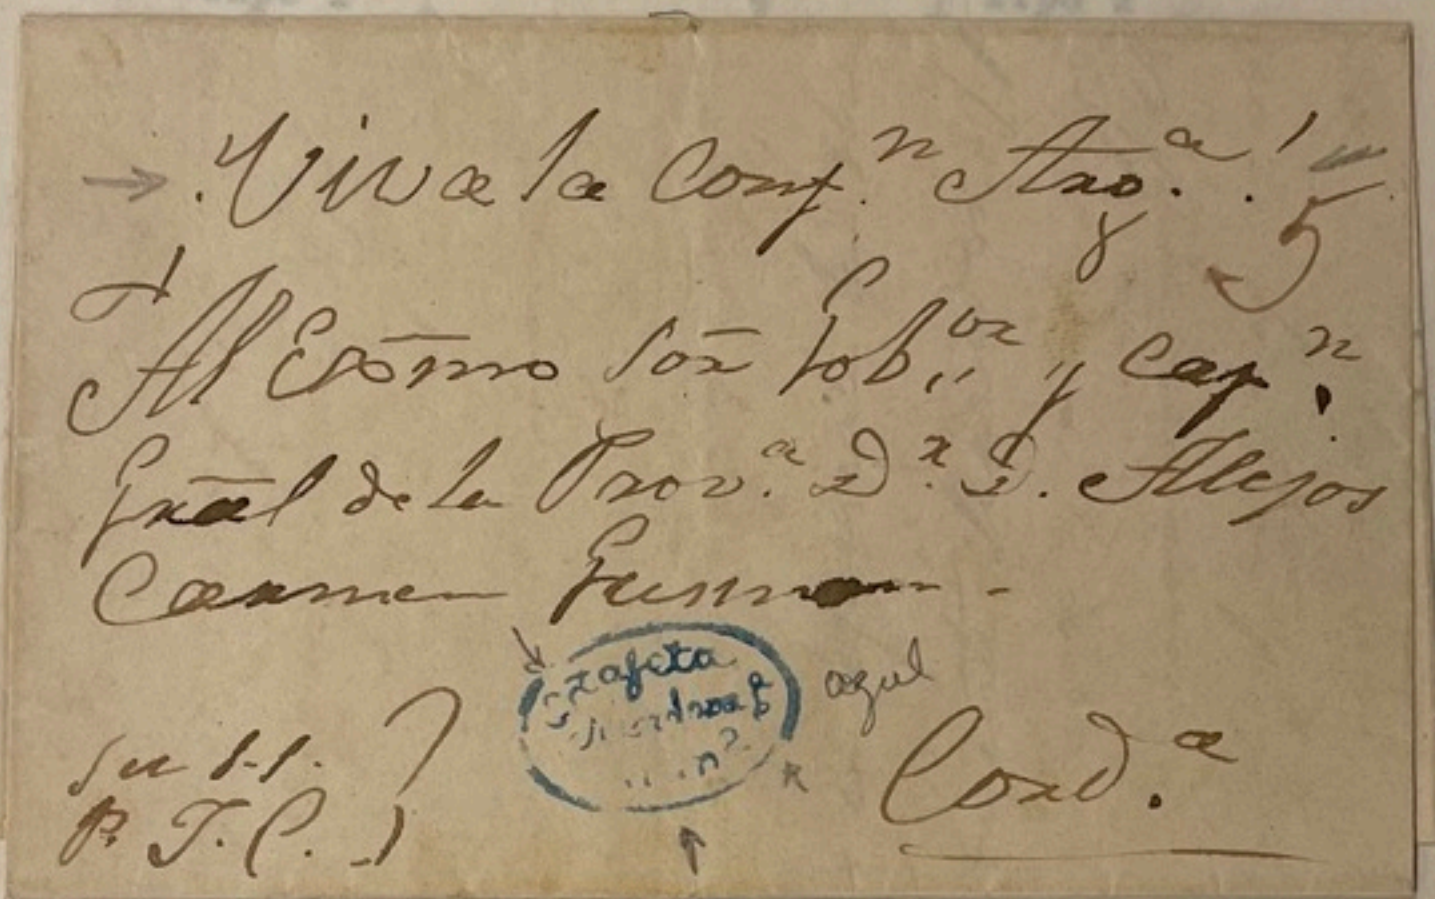 ¡Viva la Conf.n Arg.a!
5
Al Exōmo Sōr Gob.or y Cap.n
Grāl de la Prov.a D.r D. Alejos
Carmen Gusman -
Estafeta
azul
su s.s.
P. J. C.
Cord.a